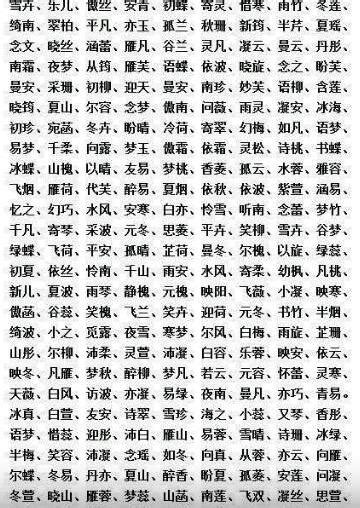 雪卉、乐儿、傲丝、安青、初蝶、寄灵、惜寒、雨竹、冬莲、
绮南、翠柏、平凡、亦玉、孤兰、秋珊、新筠、半芹、夏瑶、
念文、晓丝、涵蕾、雁凡、谷兰、灵凡、凝云、曼云、丹彤、
南霜、夜梦、从筠、雁芙、语蝶、依波、晓旋、念之、盼芙、
曼安、采珊、初柳、迎天、曼安、南珍、妙芙、语柳、含莲、
晓筠、夏山、尔容、念梦、傲南、问薇、雨灵、凝安、冰海、
初珍、宛菡、冬卉、盼晴、冷荷、寄翠、幻梅、如凡、语梦、
易梦、千柔、向露、梦玉、傲霜、依霜、灵松、诗桃、书蝶、
冰蝶、山槐、以晴、友易、梦桃、香菱、孤云、水蓉、雅容、
飞烟、雁荷、代芙、醉易、夏烟、依秋、依波、紫萱、涵易、
忆之、幻巧、水风、安寒、白亦、怜雪、听南、念蕾、梦竹、
千凡、寄琴、采波、元冬、思菱、平卉、笑柳、雪卉、谷梦、
绿蝶、飞荷、平安、孤晴、芷荷、曼冬、尔槐、以旋、绿蕊、
初夏、依丝、怜南、千山、雨安、水风、寄柔、幼枫、凡桃、
新儿、夏波、雨琴、静槐、元槐、映阳、飞薇、小凝、映寒、
傲菡、谷蕊、笑槐、飞兰、笑卉、迎荷、元冬、书竹、半烟、
绮波、小之、觅露、夜雪、寒梦、尔风、白梅、雨旋、芷珊、
山彤、尔柳、沛柔、灵萱、沛凝、白容、乐蓉、映安、依云、
映冬、凡雁、梦秋、醉柳、梦凡、若云、元容、怀蕾、灵寒、
天薇、白风、访波、亦凝、易绿、夜南、曼凡、亦巧、青易。
冰真、白萱、友安、诗翠、雪珍、海之、小蕊、又琴、香彤、
语梦、惜蕊、迎彤、沛白、雁山、易蓉、雪晴、诗珊、冰绿、
半梅、笑容、沛凝、念瑶、如冬、向真、从蓉、亦云、向雁、
尔蝶、冬易、丹亦、夏山、醉香、盼夏、孤菱、安莲、问凝、
冬萱、晓山、雁蓉、梦蕊、山菡、南莲、飞双、凝丝、思萱、